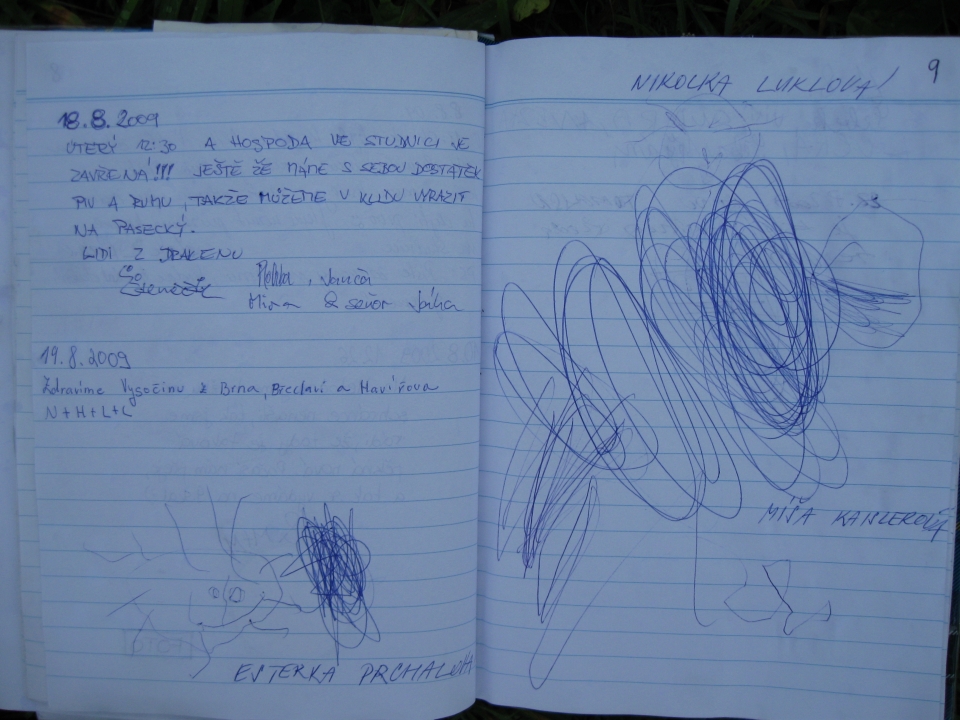 18.8.2009
ÚTERÝ 12:30 A HOSPODA VE STUDNICI JE
ZAVŘENÁ!!! JEŠTĚ ŽE MÁME S SEBOU DOSTATEK
PIV A RUMU, TAKŽE MŮŽEME V KLIDU VYRAZIT
NA PASECKÝ.
LIDI Z DRAKENU
& señor
19.8.2009
Zdravíme Vysočinu z Brna, Břeclavi a Havířova
N+H+L+L
ESTERKA PRCHALOVÁ
9
NIKOLKA LUKLOVÁ!
MÍŠA KANZEROVÁ